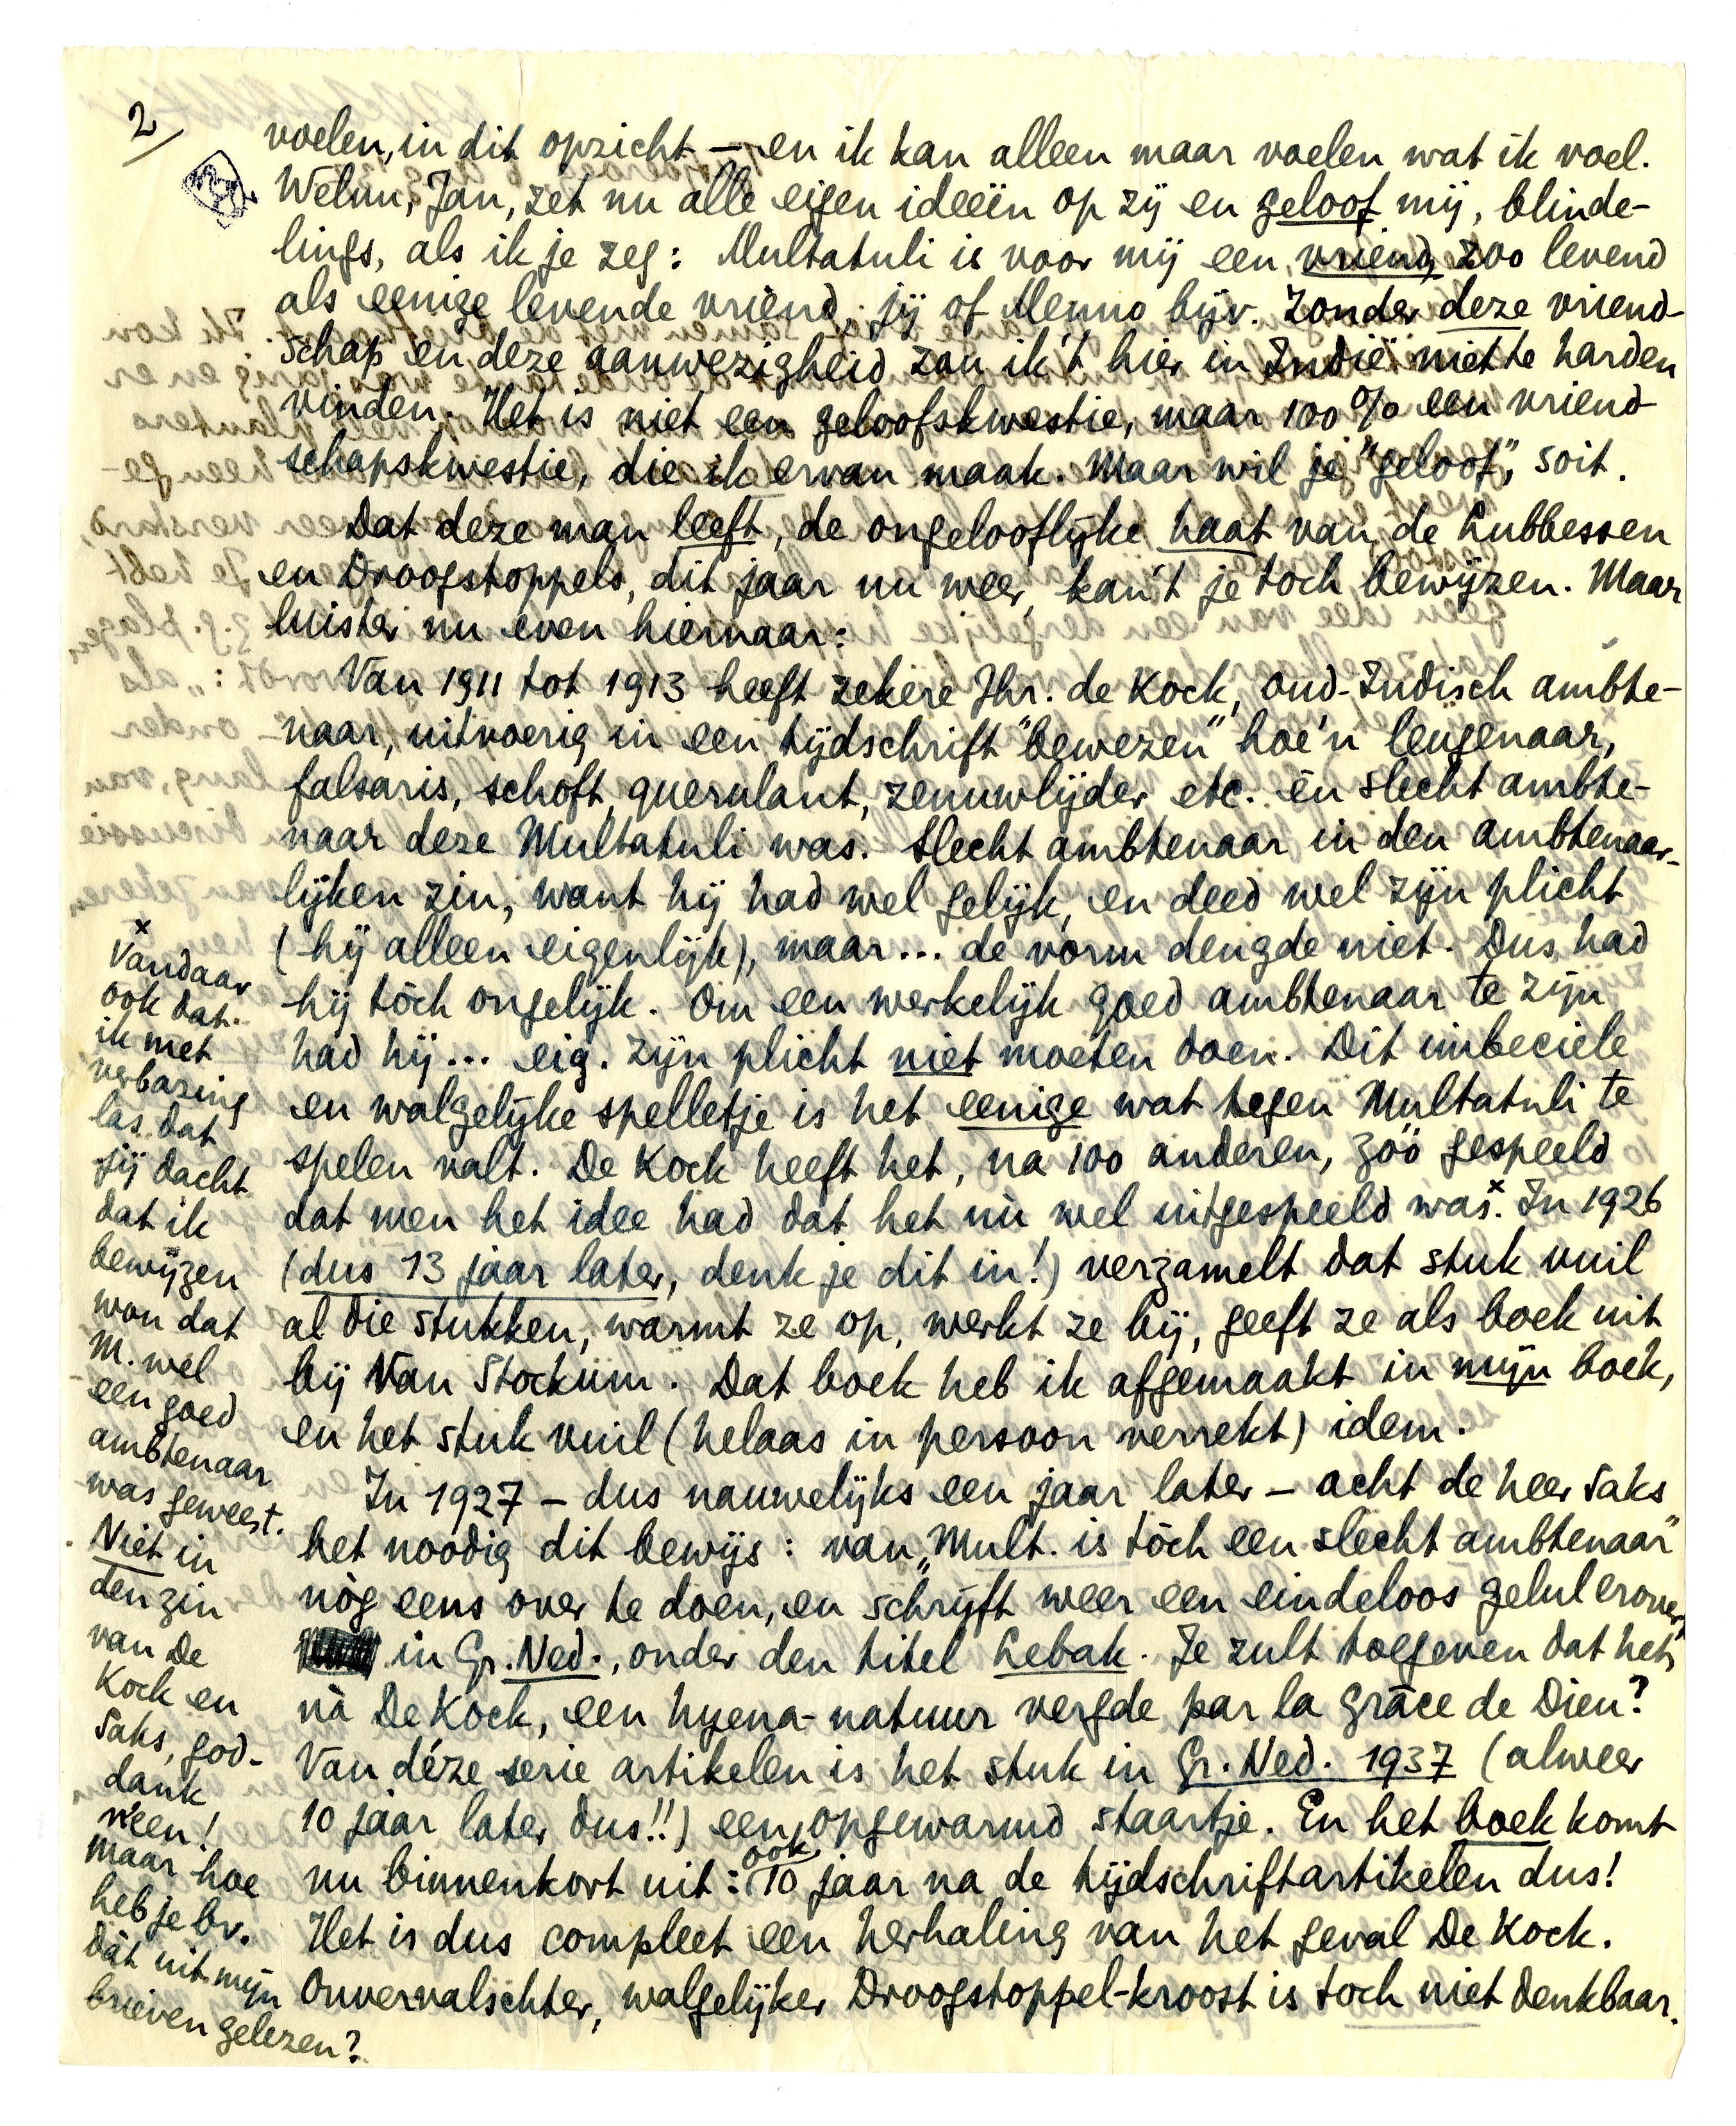 2/
voelen, in dit opzicht – en ik kan alleen maar voelen wat ik voel.
Welnu, Jan, zet nu alle eigen ideeën op zij en geloof mij, blinde-
lings, als ik je zeg: Multatuli is voor mij een vriend, zoo levend
als eenige levende vriend, jij of Menno bijv. Zonder deze vriend-
schap en deze aanwezigheid zou ik 't hier in Indië niet te harden
vinden. Het is niet een geloofskwestie, maar 100% een vriend-
schapskwestie, die ik ervan maak. Maar wil je "geloof", soit.
Dat deze man leeft, de ongelooflijke haat van de Lubbessen
en Droogstoppels, dit jaar nu weer, kan 't je toch bewijzen. Maar
luister nu even hiernaar:
Van 1911 tot 1913 heeft zekere Jhr. de Kock, oud-Indisch ambte-
naar, uitvoerig in een tijdschrift "bewezen" hoe 'n leugenaar,
falsaris, schoft, querulant, zenuwlijder etc. èn slecht ambte-
naar deze Multatuli was. Slecht ambtenaar in den ambtenaar-
lijken zin, want hij had wel gelijk, en deed wel zijn plicht
(hij alleen eigenlijk), maar... de vorm deugde niet. Dus had
hij tòch ongelijk. Om een werkelijk goed ambtenaar te zijn
had hij... eig. zijn plicht niet moeten doen. Dit imbeciele
en walgelijke spelletje is het eenige wat tegen Multatuli te
spelen valt. De Kock heeft het, na 100 anderen, zóó gespeeld
dat men het idee had dat het nù wel uitgespeeld was.x In 1926
(dus 13 jaar later, denk je dit in!) verzamelt dat stuk vuil
al die stukken, warmt ze op, werkt ze bij, geeft ze als boek uit
bij Van Stockum. Dat boek heb ik afgemaakt in mijn boek,
en het stuk vuil (helaas in persoon verrekt) idem.
In 1927 – dus nauwelijks een jaar later – acht de heer Saks
het noodig dit bewijs: van „Mult. is tòch een slecht ambtenaar"
nòg eens over te doen, en schrijft weer een eindeloos gelul erover,
in Gr. Ned., onder den titel Lebak. Je zult toegeven dat het,
nà De Kock, een hyena-natuur vergde par la grâce de Dieu?
Van déze serie artikelen is het stuk in Gr. Ned. 1937 (alweer
10 jaar later dus!!) een opgewarmd staartje. En het boek komt
nu binnenkort uit: ook 10 jaar na de tijdschriftartikelen dus!
Het is dus compleet een herhaling van het geval De Kock.
Onvervalschter, walgelijker Droogstoppel-kroost is toch niet denkbaar.
x
Vandaar
ook dat
ik met
verbazing
las dat
jij dacht
dat ik
bewijzen
wou dat
M. wel
een goed
ambtenaar
was geweest.
Niet in
den zin
van De
Kock en
Saks, god-
dank
neen!
Maar hoe
heb je bv.
dàt uit mijn
brieven gelezen?